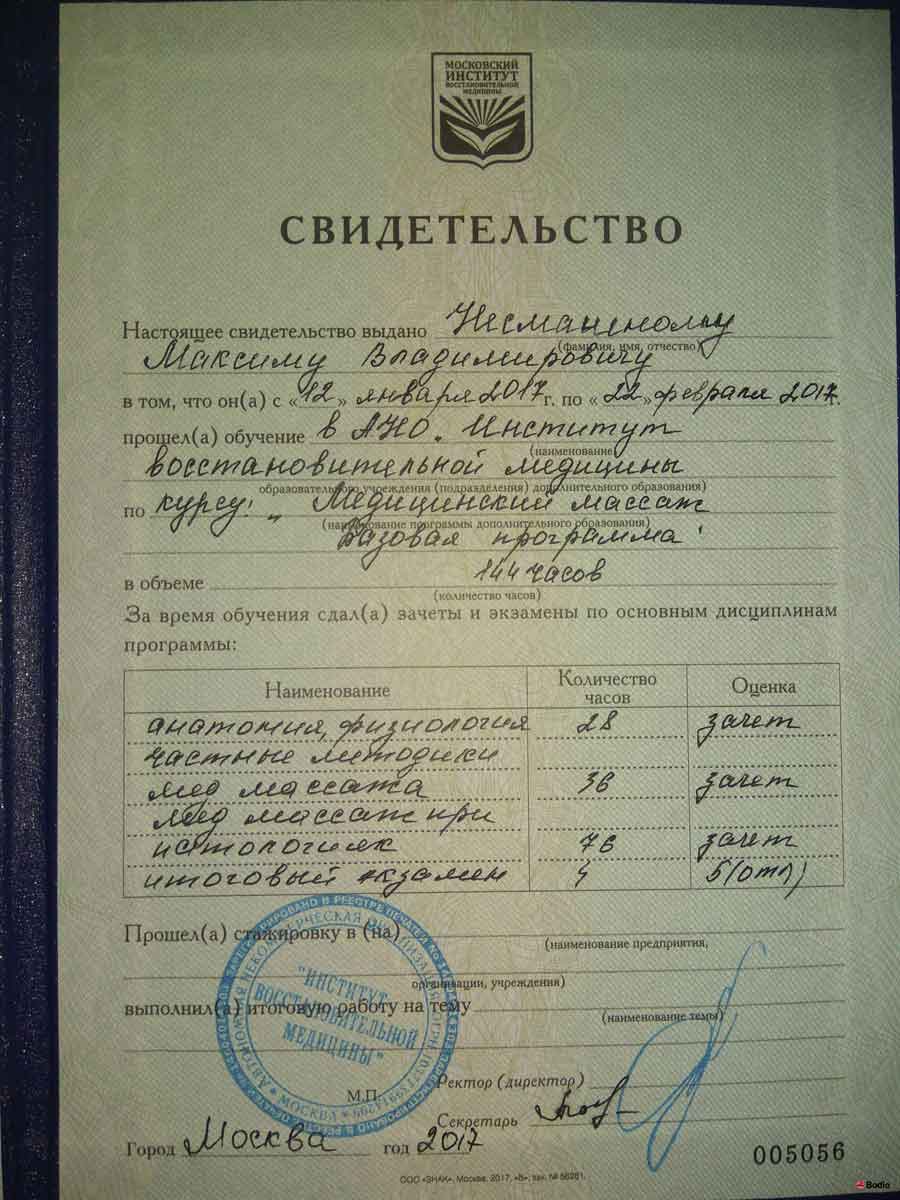 МОСКОВСКИЙ
ИНСТИТУТ
ВОССТАНОВИТЕЛЬНОЙ
МЕДИЦИНЫ
СВИДЕТЕЛЬСТВО
Настоящее свидетельство выдано
(фамилия, имя, отчество)
Максиму Владимировичу
в том, что он(а) с «12» января 2017г. по «22» февраля 2017г.
прошел(а) обучение в АНО „Институт
(наименование
восстановительной медицины
образовательного учреждения (подразделения) дополнительного образования)
по курсу: „Медицинский массаж
(наименование программы дополнительного образования)
Базовая программа"
в объеме 144 часов
(количество часов)
За время обучения сдал(а) зачеты и экзамены по основным дисциплинам
программы:
Наименование Количество часов Оценка
анатомия, физиология 28 зачет
частные методики
мед массажа 36 зачет
мед массаж при
патологиях 76 зачет
итоговый экзамен 4 5(отл)
Прошел(а) стажировку в (на)
(наименование предприятия,
организации, учреждения)
выполнил(а) итоговую работу на тему
(наименование темы)
"ИНСТИТУТ
ВОССТАНОВИТЕЛЬНОЙ
МЕДИЦИНЫ"
* МОСКВА *
М.П.
Ректор (директор)
Секретарь
Город Москва год 2017
005056
ООО «ЗНАК», Москва, 2017, «В», зак. № 56281.
Bodio